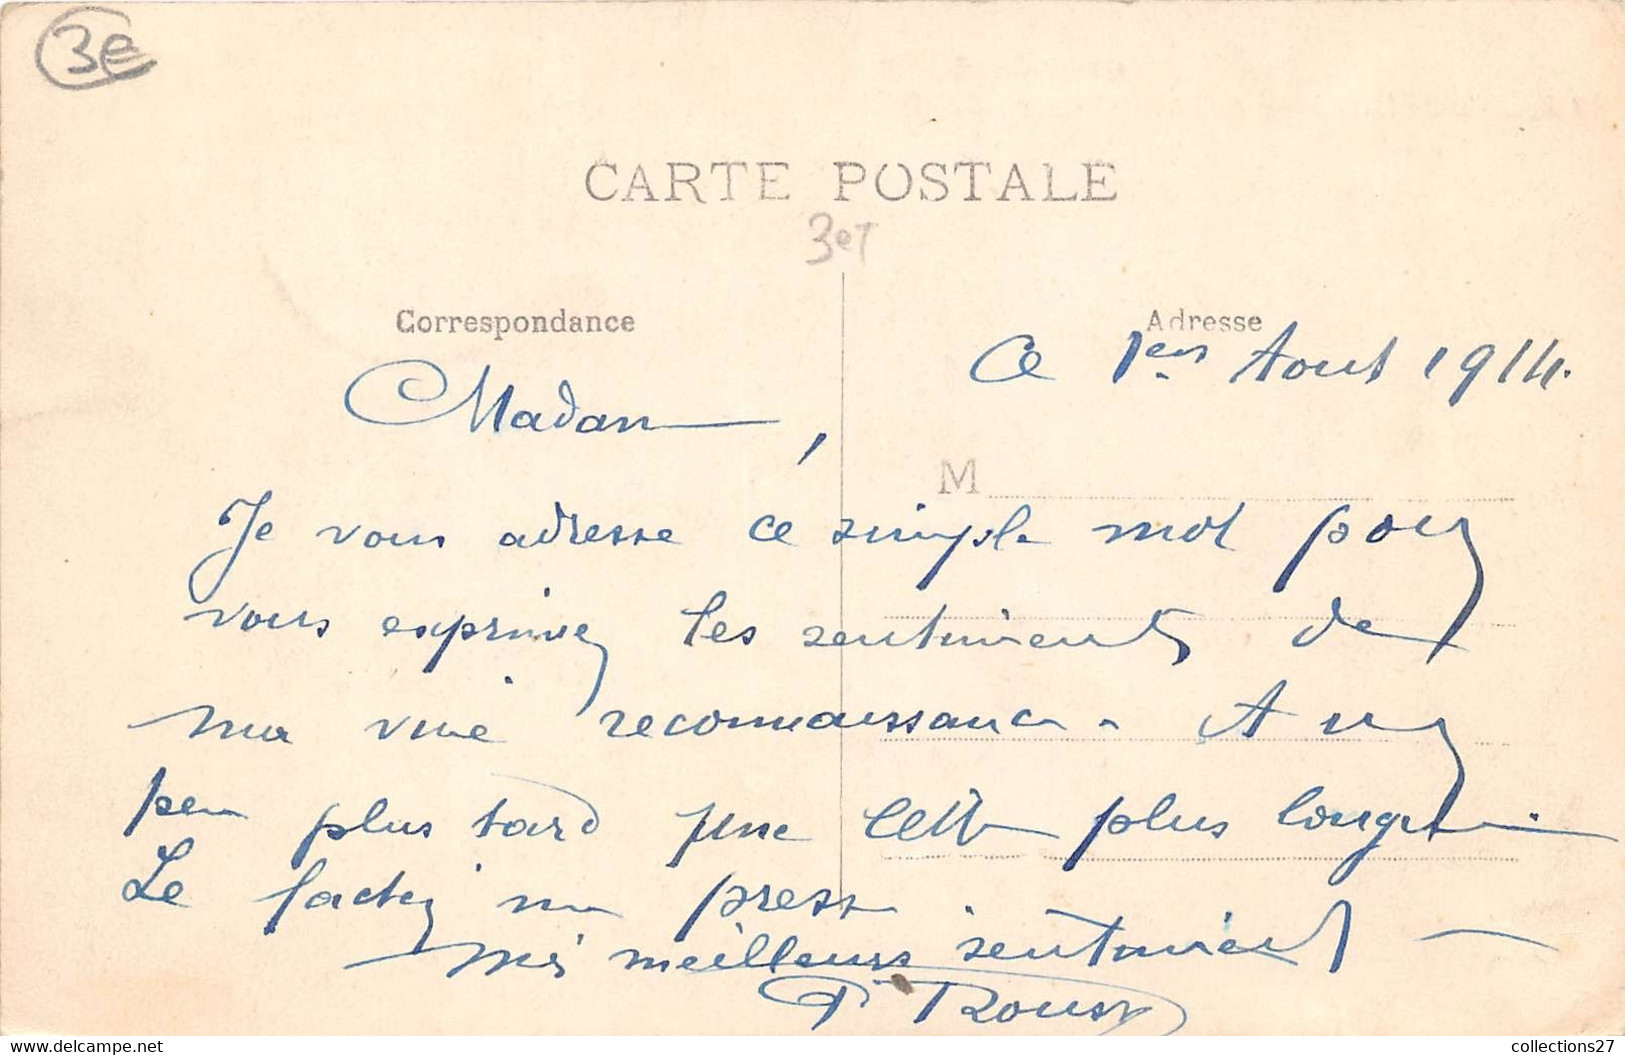 3e
CARTE POSTALE
3eT
Correspondance
Adresse
Ce 1er Aout 1914.
Madame,
M
Je vous adresse ce simple mot pour
vous exprimer les sentiments de
ma vive reconnaissance. A un
peu plus tard une lettre plus longue.
Le facteur me presse.
Mes meilleurs sentiments
collections27